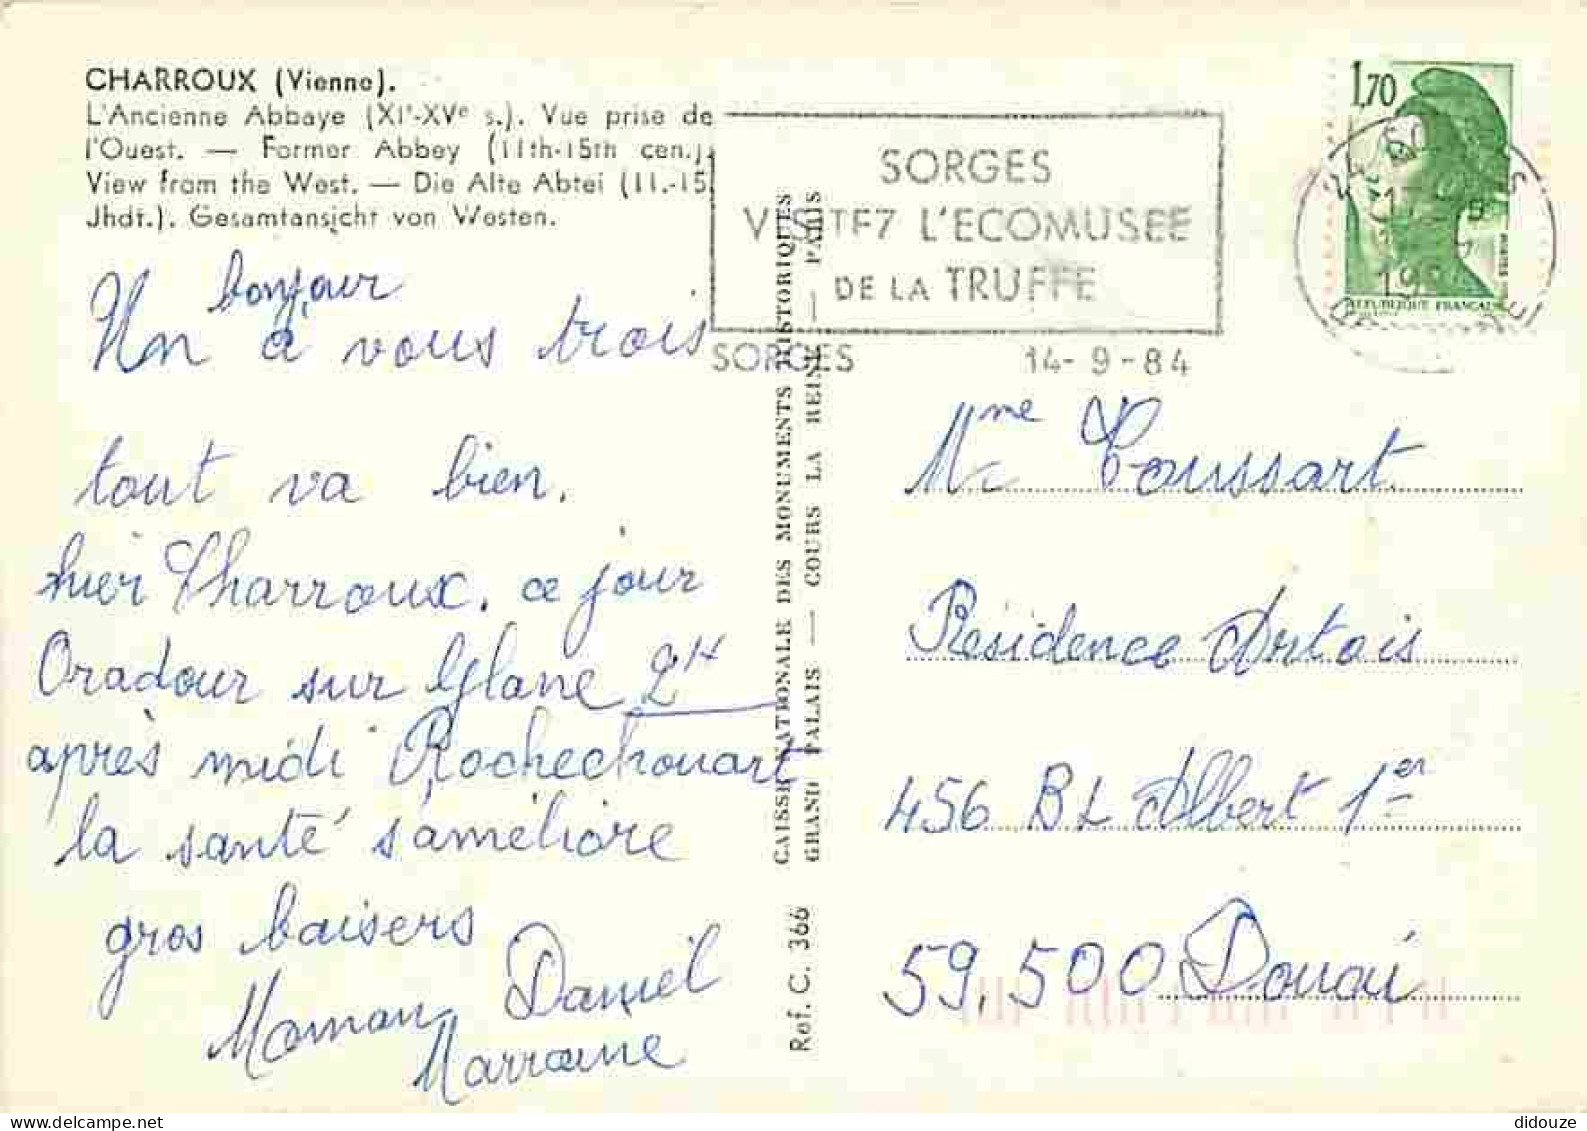 CHARROUX (Vienne).
L'Ancienne Abbaye (XIe-XVe s.). Vue prise de
l'Ouest. — Former Abbey (11th-15th cen.).
View from the West. — Die Alte Abtei (11.-15.
Jhdt.). Gesamtansicht von Westen.
SORGES
VISITEZ L'ECOMUSEE
DE LA TRUFFE
SORGES 14-9-84
1,70
REPUBLIQUE FRANCAISE
Un bonjour à vous trois
tout va bien.
hier Charroux. ce jour
Oradour sur Glane 2H
après midi Rochechouart
la santé s'améliore
gros baisers
Maman Daniel
Marraine
CAISSE NATIONALE DES MONUMENTS HISTORIQUES
GRAND PALAIS — COURS LA REINE — PARIS
Ref. C. 366
Mme Coussart
Résidence Artois
456 Bd Albert 1er
59.500 Douai
didouze